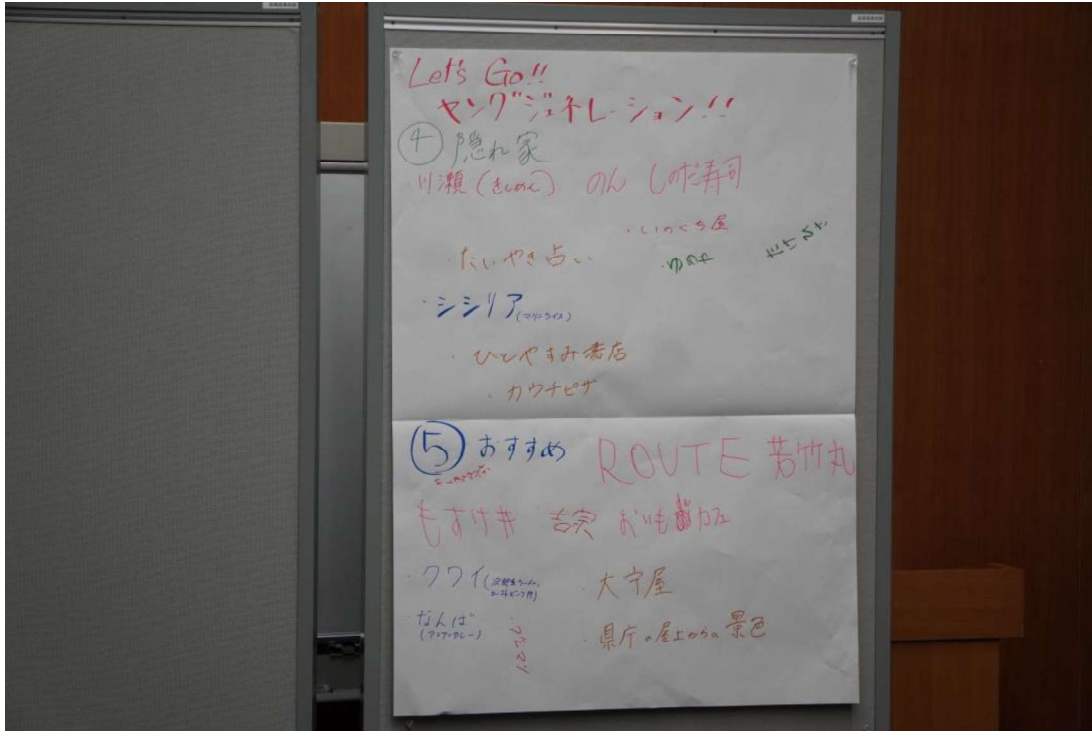 Let's Go!!
ヤングジェネレーション!!
④ 隠れ家
川瀬(きしめん) のん しのだ寿司
・いのくち屋
・たいやき占い ・ゆめや
・シシリア(マリンライス)
・ひとやすみ書店
・カウチピザ
⑤ おすすめ ROUTE 若竹丸
もすけ丼 吉宗 おいもカフェ
・クワイ
・大守屋
・なんば
・アビマツ
・県庁の屋上からの景色